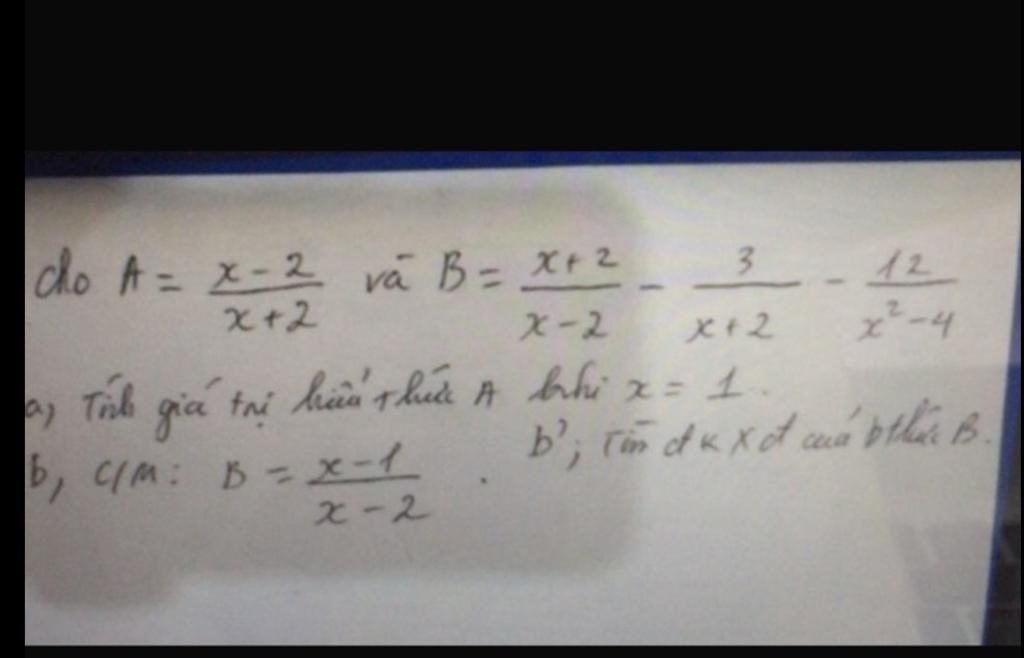 cho A = \frac{x-2}{x+2} và B = \frac{x+2}{x-2} - \frac{3}{x+2} - \frac{12}{x^2-4}
a, Tính giá trị biểu thức A khi x = 1.
b', Tìm đkxđ của bthức B.
b, C/M: B = \frac{x-1}{x-2}.